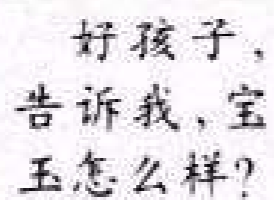 好孩子，
告诉我，宝
玉怎么样？